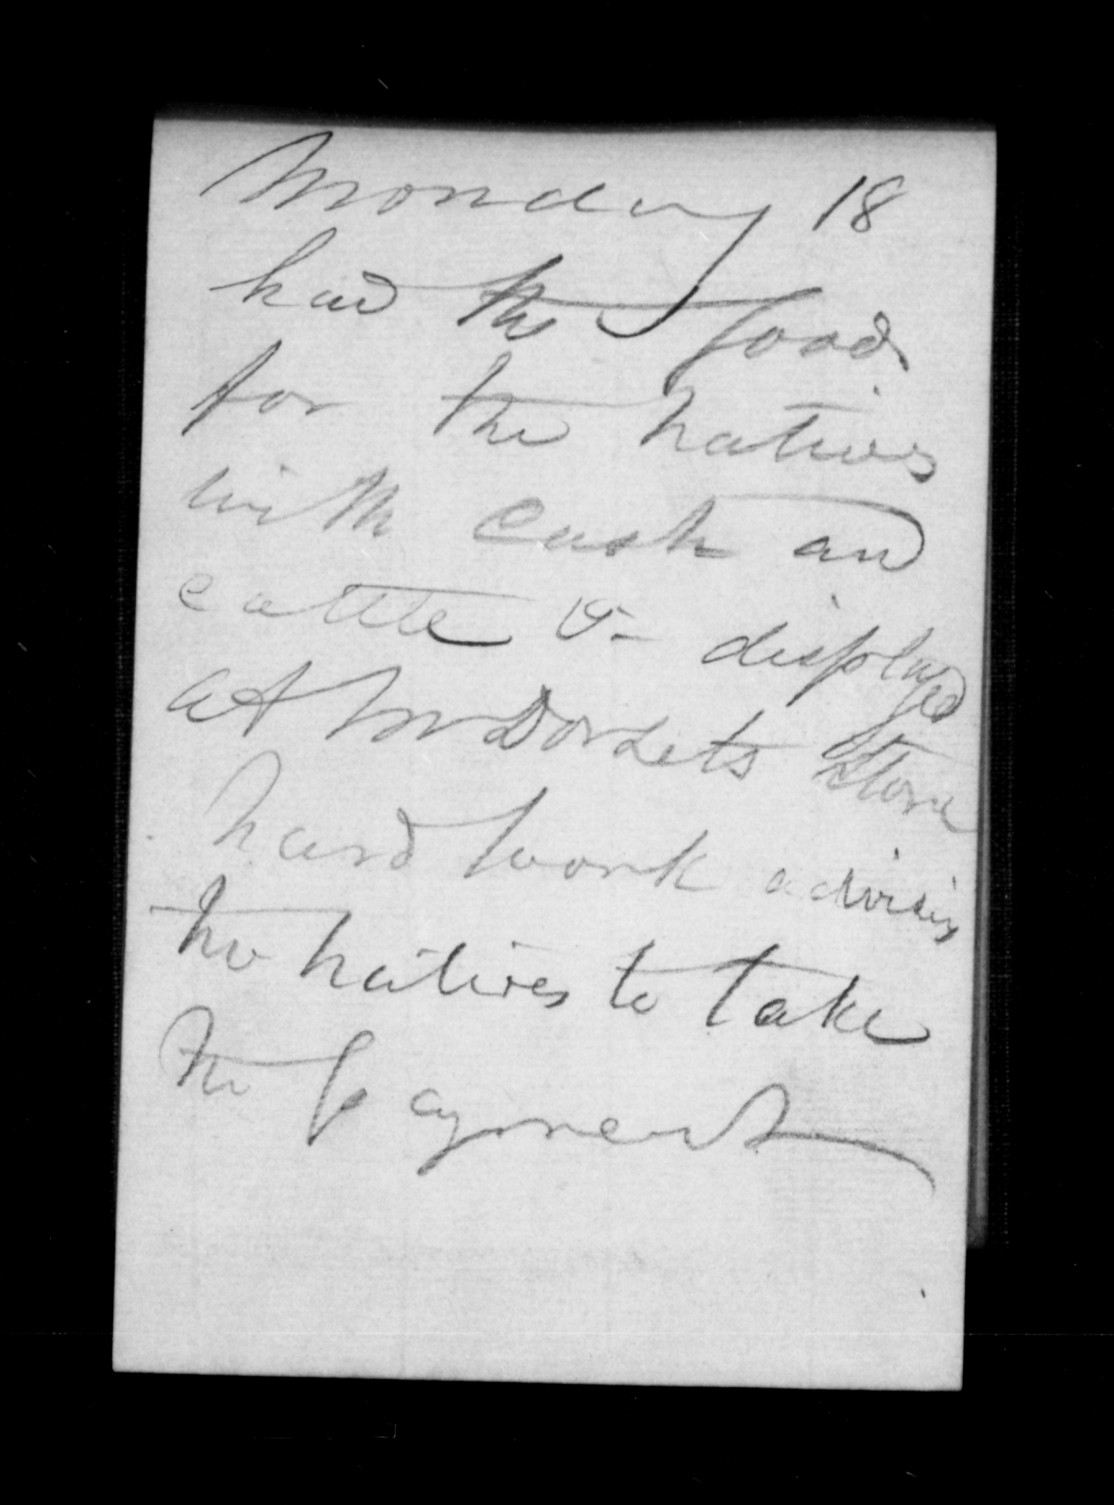 Monday 18
had the goods
for the natives
with cash and
cattle &- displayed
at Mr Dorsets Store
hard work advising
the natives to take
the payment